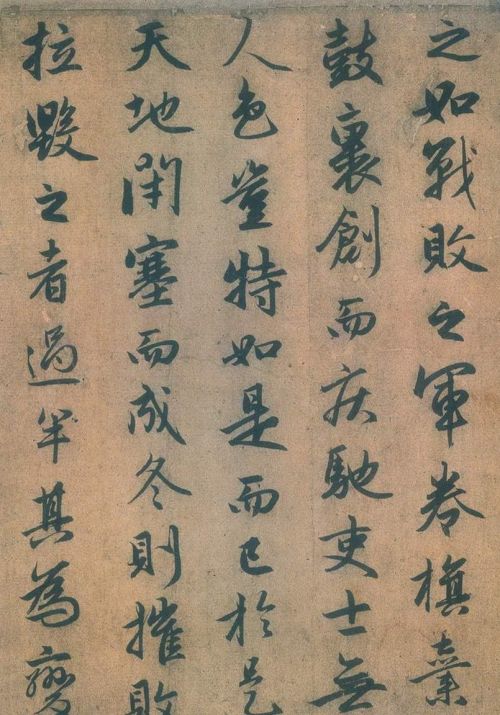 之如戰敗之軍卷旗棄
鼓裹創而疾馳吏士無
人色豈特如是而已於是
天地閇塞而成冬則摧敗
拉毀之者過半其為變